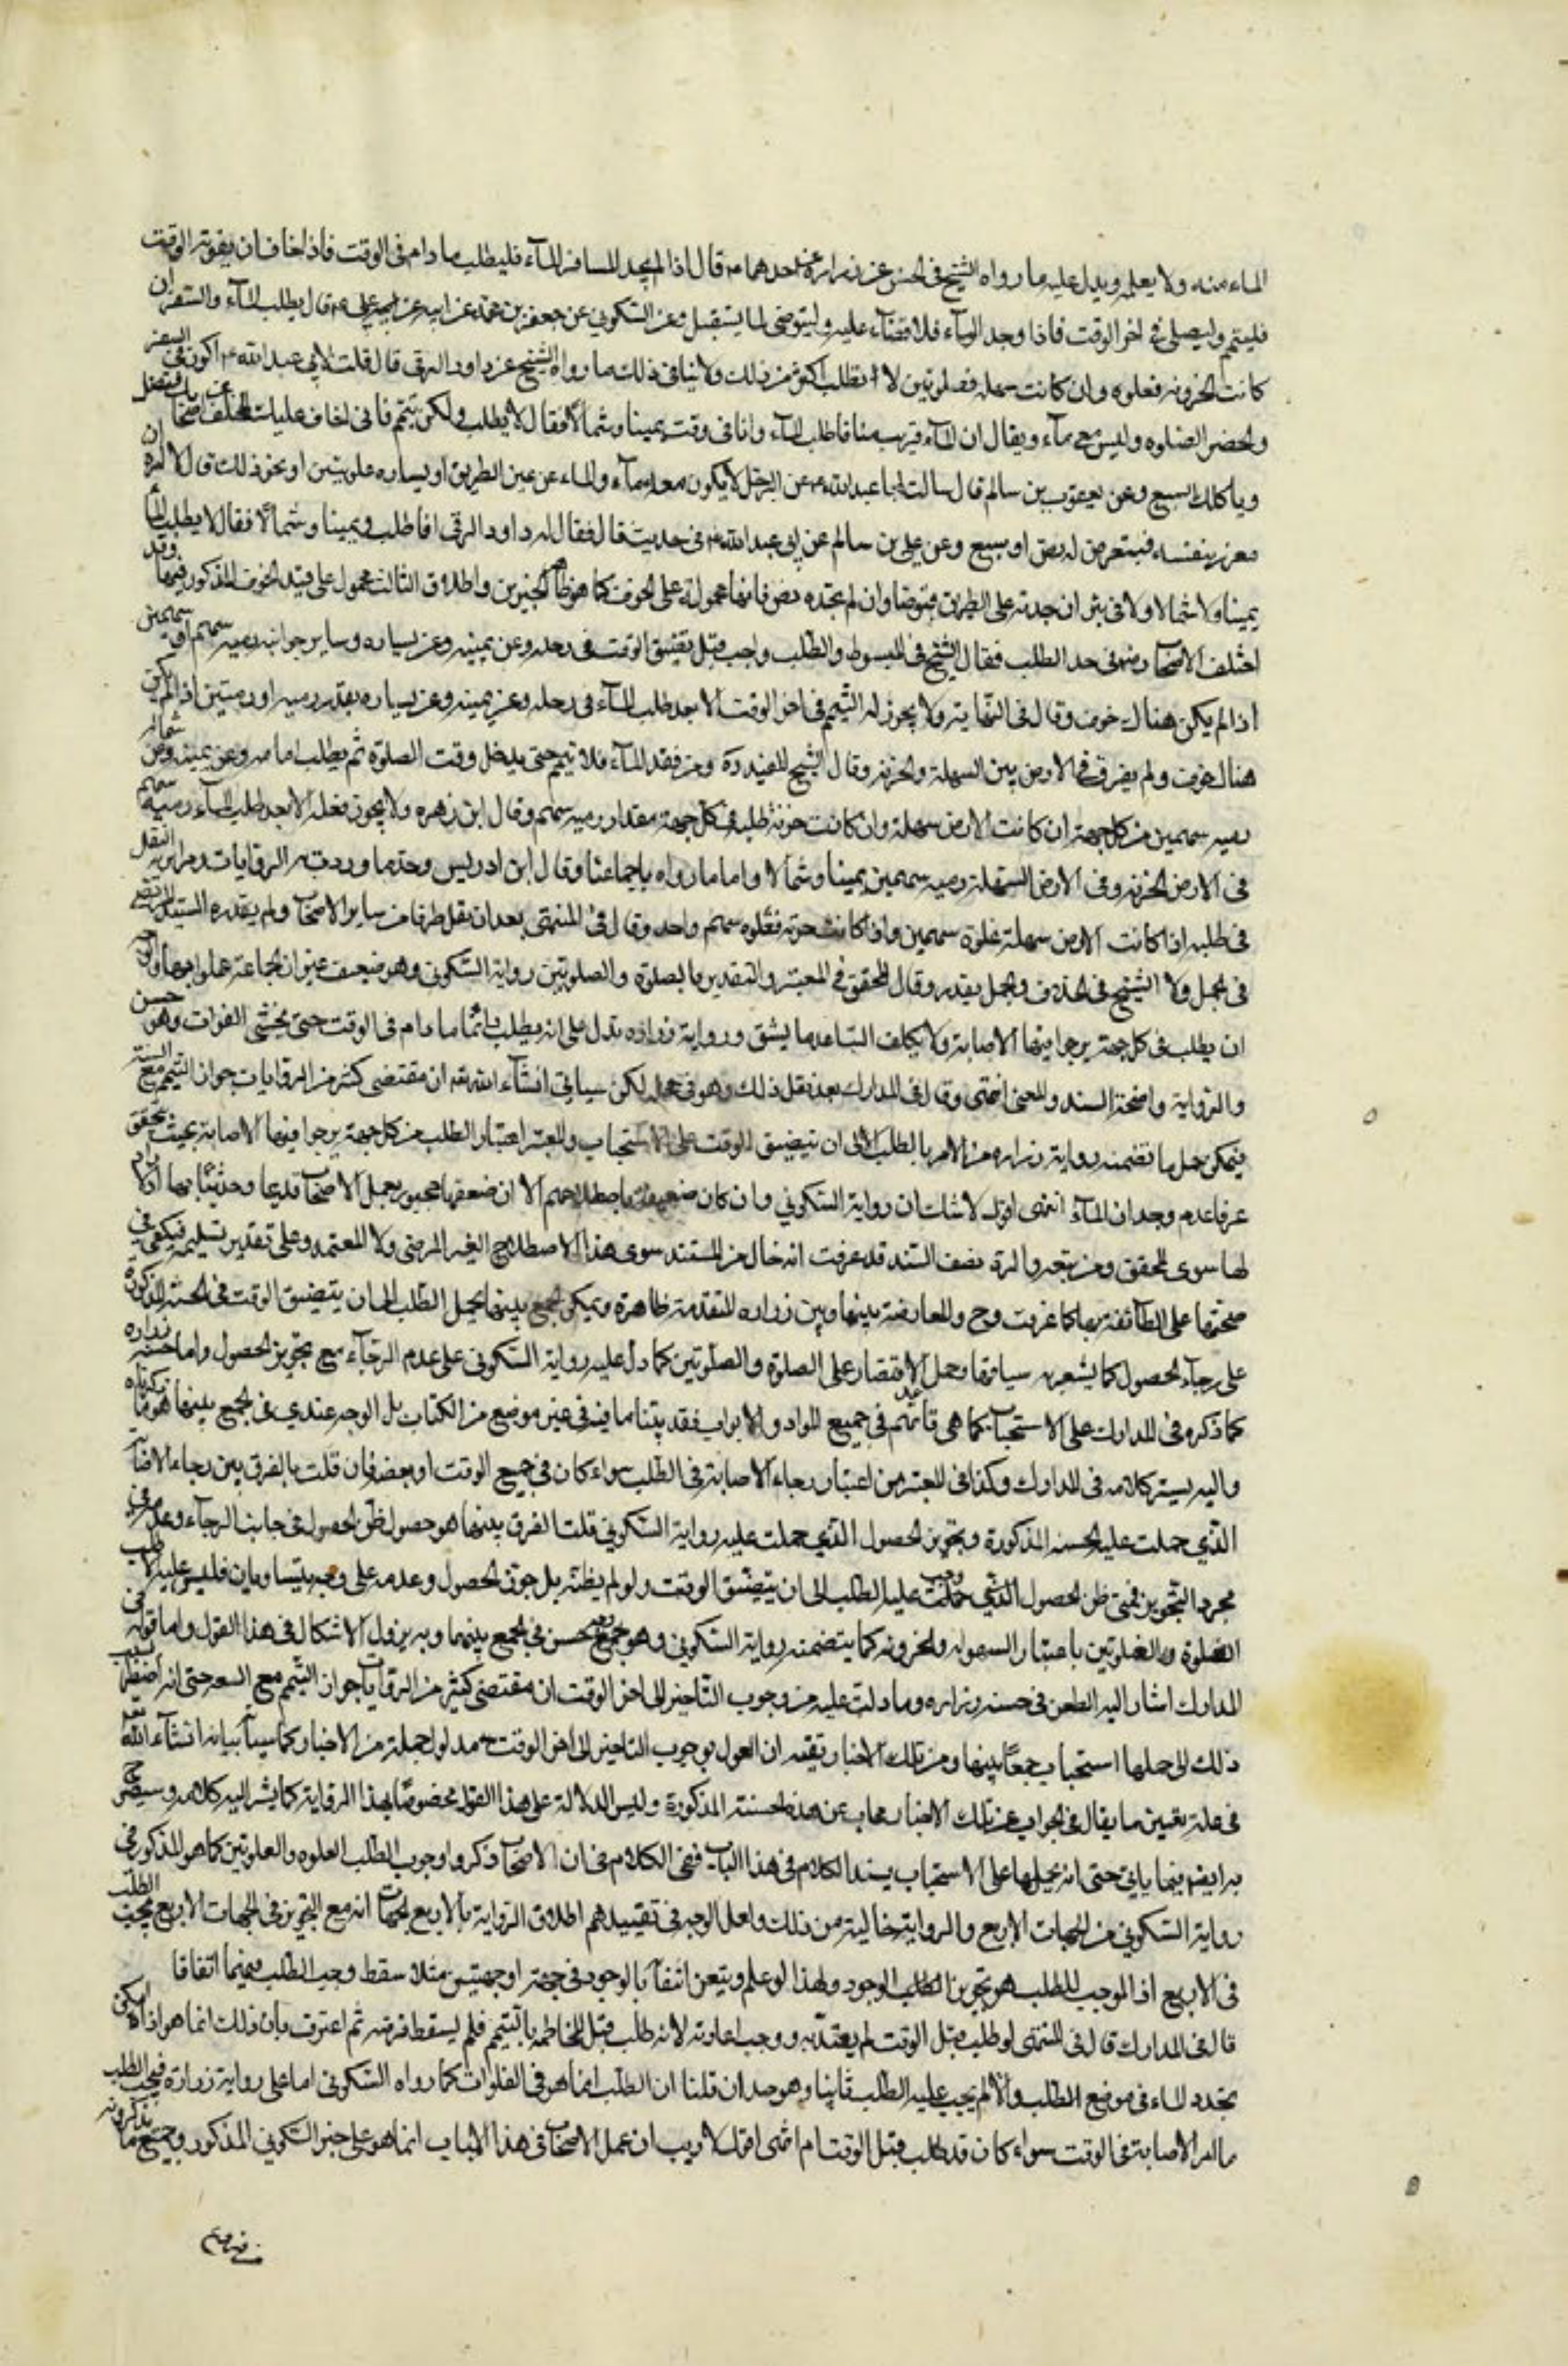 الماء منه ولا يعلمه ويدل عليه ما رواه الشيخ في الحسن عن زراره عن احدهما ع قال اذا لم يجد المسافر الماء فليطلب ما دام في الوقت فاذا خاف ان يفوته الوقت
فليتيمم وليصلى في اخر الوقت فاذا وجد الماء فلا قضاء عليه وليتوضى لما يستقبل وعن السكوني عن جعفر بن محمد عن ابيه عن علي ع قال يطلب الماء في السفر ان
كانت الحزونه فغلوه وان كانت سهله فغلوتين لا يطلب اكثر من ذلك ولا ينافى ذلك ما رواه الشيخ عن داود الرقى قال قلت لابي عبد الله ع اكون في السفر
وتحضر الصلوه وليس معى ماء ويقال ان الماء قريب منا فاطلب الماء وانا في وقت يمينا وشمالا فقال لا تطلب ولكن تيمم فانى اخاف عليك التخلف عن اصحابك فتضل
وياكلك السبع وعن يعقوب بن سالم قال سالت ابا عبد الله ع عن الرجل لا يكون معه ماء والماء عن يمين الطريق او يساره غلوتين او نحو ذلك قال لا امره ان
يغرر بنفسه فيتعرض له لص او سبع وعن علي بن سالم عن ابي عبد الله ع في حديث قال فقال له داود الرقى افاطلب يمينا وشمالا فقال لا تطلب الماء
يمينا ولا شمالا ولا في بئر ان وجدته على الطريق فتوضا وان لم تجده فانها محمولة على الخوف كما هو ظاهر الخبرين واطلاق الثالث محمول على قيد الخوف المذكور فيهما وقد
اختلف الاصحاب رض في حد الطلب فقال الشيخ في المبسوط والطلب واجب قبل تضيق الوقت في رحله وعن يمينه وعن يساره وساير جوانبه رميه سهم او سهمين
اذا لم يكن هناك خوف وقال في النهاية ولا يجوز له التيمم في اخر الوقت الا بعد طلب الماء في رحله وعن يمينه وعن يساره بقدر رميه او رميتين اذا لم يكن
هناك خوف ولم يفرق في الارض بين السهلة والحزنه وقال الشيخ المفيد ره ومن فقد الماء فلا يتيمم حتى يدخل وقت الصلوة ثم يطلب امامه وعن يمينه وعن شماله
رميه سهمين من كل جهة ان كانت الارض سهلة وان كانت حزنة طلبه في كل جهة مقدار رميه سهم وقال ابن زهره ولا يجوز فعله الا بعد طلب الماء رميه سهم
في الارض الحزنه وفى الارض السهلة رميه سهمين يمينا وشمالا واماما رواه باجماعنا وقال ابن ادريس وحد ما وردت به الروايات وتواتر به النقل
في طلبه اذا كانت الارض سهلة غلوة سهمين واذا كانت حزنه فغلوه سهم واحد وقال في المنتهى بعد ان نقل طرفا من ساير الاصحاب ولم يقدره السيد المرتضى
في الجمل ولا الشيخ في الخلاف والجمل بقدر وقال المحقق في المعتبر والتقدير بالغلوة والغلوتين رواية السكوني وهو ضعيف غير ان الجماعة عملوا بها والوجه
ان يطلب في كل جهة يرجو فيها الاصابة ولا يكلف التباعد ما يشق ورواية زراره تدل على انه يطلب دائما ما دام في الوقت حتى يخشى الفوات وهو حسن
والرواية واضحة السند والمعنى انتهى وقال في المدارك بعد نقل ذلك وهو في محله لكن سياتي انشاء الله تع ان مقتضى كثير من الروايات جواز التيمم مع السعة
فيمكن حمل ما تضمنه رواية زراره من الامر بالطلب الى ان يتضيق الوقت على الاستحباب والمعتبر اعتبار الطلب من كل جهة يرجو فيها الاصابة بحيث يتحقق
عرفا عدم وجدان الماء انتهى اقول لا شك ان رواية السكوني وان كان ضعيفة باصطلاحهم الا ان ضعفها مجبور بعمل الاصحاب قديما وحديثا بها
لها سوى المحقق ومن تبعه والرد بضعف السند قد عرفت انه خال من المستند سوى هذا الاصطلاح الغير المرضى ولا المعتمد وعلى تقدير تسليمه فيكفى في
صحتها على الطائفه بها كما عرفت وح والمعارضة بينها وبين زراره المتقدمة ظاهرة ويمكن الجمع بينها بحمل الطلب الى ان يتضيق الوقت في الحسنة المذكورة
على رجاء الحصول كما يشعر به سياقها وحمل الاقتصار على الغلوة والغلوتين كما دل عليه رواية السكوني على عدم الرجاء مع تجويز الحصول واما حمل حسنه زراره
كما ذكره في المدارك على الاستحباب كما هى قاعدتهم في جميع المواد والابواب فقد بينا ما فيه في غير موضع من الكتاب بل الوجه عندي في الجمع بينها هو ما ذكرناه
واليه يشير كلامه في المدارك وكذا في المعتبر من اعتبار رجاء الاصابة في الطلب سواء كان في جميع الوقت او بعضه فان قلت ما الفرق بين رجاء الاصابة
الذي حملت عليه الحسنه المذكورة وتجويز الحصول الذي حملت عليه رواية السكوني قلت الفرق بينهما هو حصول ظن الحصول في جانب الرجاء وعدمه في
مجرد التجويز فمتى ظن الحصول الذي حملت وجب عليه الطلب الى ان يتضيق الوقت ولو لم يظنه بل جوز الحصول وعدمه على وجه يتساويان فليس عليه الا طلب
الغلوة والغلوتين باعتبار السهوله والحزونه كما يتضمنه رواية السكوني وهو جمع حسن في الجمع بينهما وبه يزول الاشكال في هذا القول واما قوله في
المدارك اشار اليه الطعن في حسنه زراره وما دلت عليه من وجوب التاخير الى اخر الوقت ان مقتضى كثير من الروايات جواز التيمم مع السعة حتى انه
ذلك الى حملها استحبابا جمعا بينها ومن تلك الاخبار ففيه ان القول بوجوب التاخير الى اخر الوقت مدلول جملة من الاخبار كما سياتي بيانه انشاء الله تع
في علة تعيين ما يقال في الجواب عن تلك الاخبار يجاب عن هذه الحسنة المذكورة وليس الدلالة على هذا القول مخصوصا بهذا الرواية كما يشير اليه كلامه وسيصرح
به ايضا فيما ياتي حتى انه بحملها على الاستحباب يسند الكلام في هذا الباب فبقى الكلام في ان الاصحاب ذكروا وجوب الطلب الغلوه والغلوتين كما هو المذكور في
رواية السكوني من الجهات الاربع والرواية خالية من ذلك ولعل الوجه في تقييدهم اطلاق الرواية بالاربع الجهات انه مع التجويز في الجهات الاربع يجب الطلب
في الاربع اذ الموجب للطلب هو تجويز الطالب الوجود ولهذا لو علم وتيقن انتفاء الوجود في جهة او جهتين مثلا سقط وجوب الطلب فيهما اتفاقا
قال في المدارك قال في المنتهى لو طلب قبل الوقت لم يعتد به ووجب اعادته لانه طلب قبل المخاطبة بالتيمم فلم يسقط فرضه ثم اعترف بان ذلك انما هو اذا امكن
تجدد الماء في موضع الطلب والا لم يجب عليه الطلب ثانيا وهو جيد ان قلنا ان الطلب انما هو في الغلوات كما رواه السكوني اما على رواية زراره فيجب الطلب
ما امل الاصابة في الوقت سواء كان قد طلب قبل الوقت ام انتهى اقول لا ريب ان عمل الاصحاب في هذا الباب انما هو على خبر السكوني المذكور وجميع ما يذكرونه